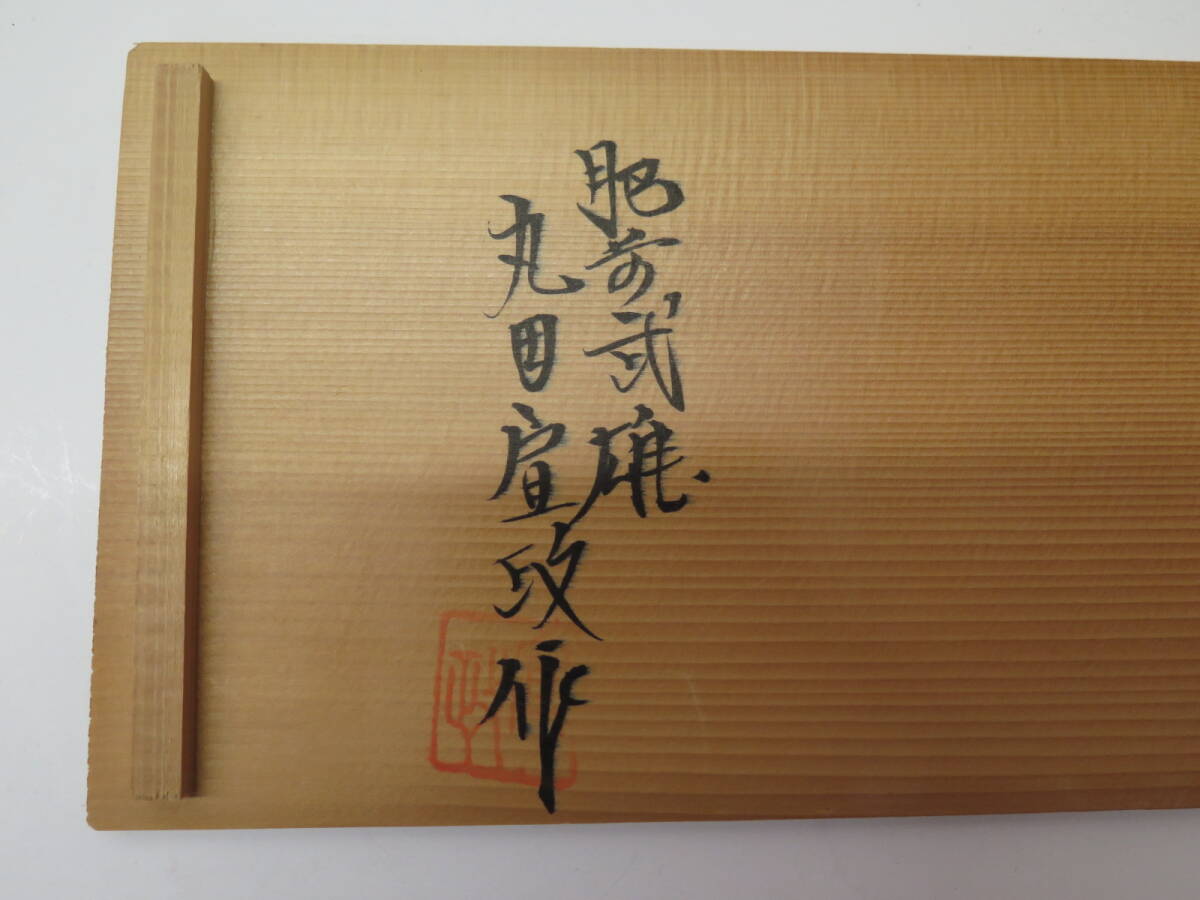 肥前武雄
丸田宣政作